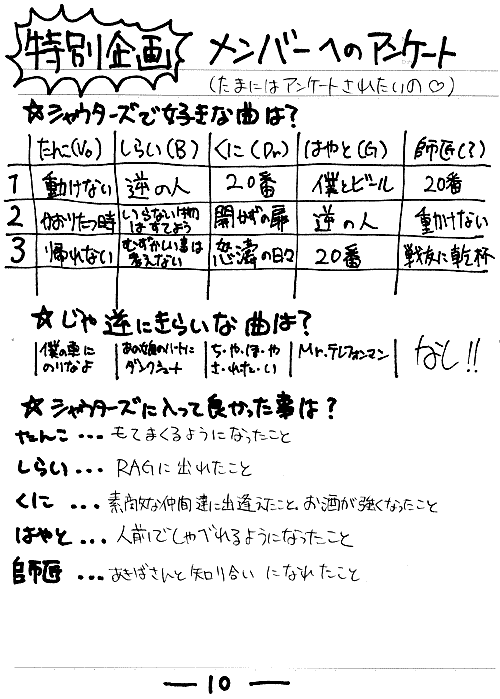 特別企画 メンバーへのアンケート
(たまにはアンケートされたいの♡)
☆シャウターズで好きな曲は?
たんこ(Vo) しらい(B) くに(Dr) はやと(G) 師匠(?)
1 動けない 逆の人 20番 僕とビール 20番
2 かおりたつ時 いらない物はすてよう 開かずの扉 逆の人 動かけない
3 帰れない むずかしい事は考えない 怒濤の日々 20番 戦友に乾杯
☆じゃ逆にきらいな曲は?
僕の車にのりなよ あの娘のハートにダンクシュート ち・や・ほ・やさ・れた・い Mr.テレフォンマン なし!!
☆シャウターズに入って良かった事は?
たんこ… もてまくるようになったこと
しらい… RAGに出れたこと
くに … 素敵な仲間達に出逢えたこと、お酒が強くなったこと
はやと… 人前でしゃべれるようになったこと
師匠 … あきばさんと知り合いになれたこと
— 10 —